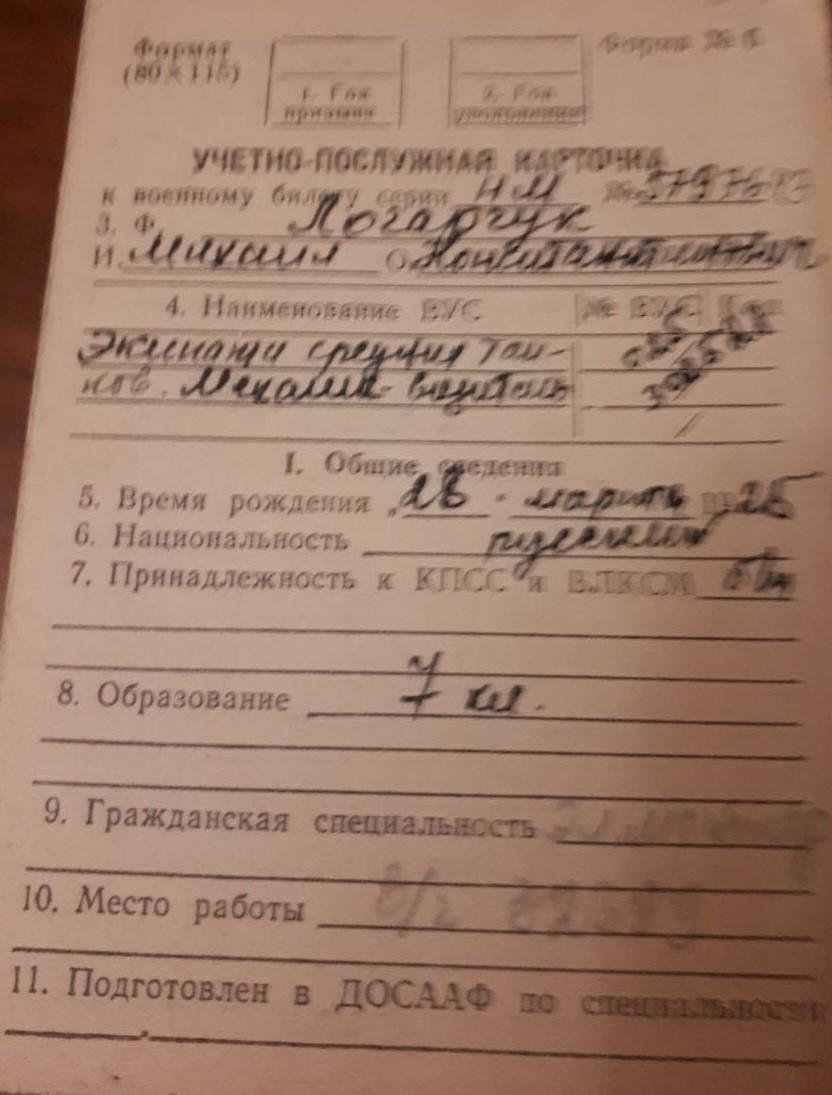 Формат
(80×115)
1. Год
приёмки
2. Год
Форма №
УЧЕТНО-ПОСЛУЖНАЯ КАРТОЧКА
к военному билету серии НМ №
3. Ф. Логарчук
И. Михаил О. Константинович
4. Наименование ВУС № ВУС Код
Экипажи средних тан-
ков. Механик-водитель
I. Общие сведения
5. Время рождения „28" марта 1925
6. Национальность русский
7. Принадлежность к КПСС и ВЛКСМ б/п
8. Образование 7 кл.
9. Гражданская специальность
10. Место работы В/ч
11. Подготовлен в ДОСААФ по специальности